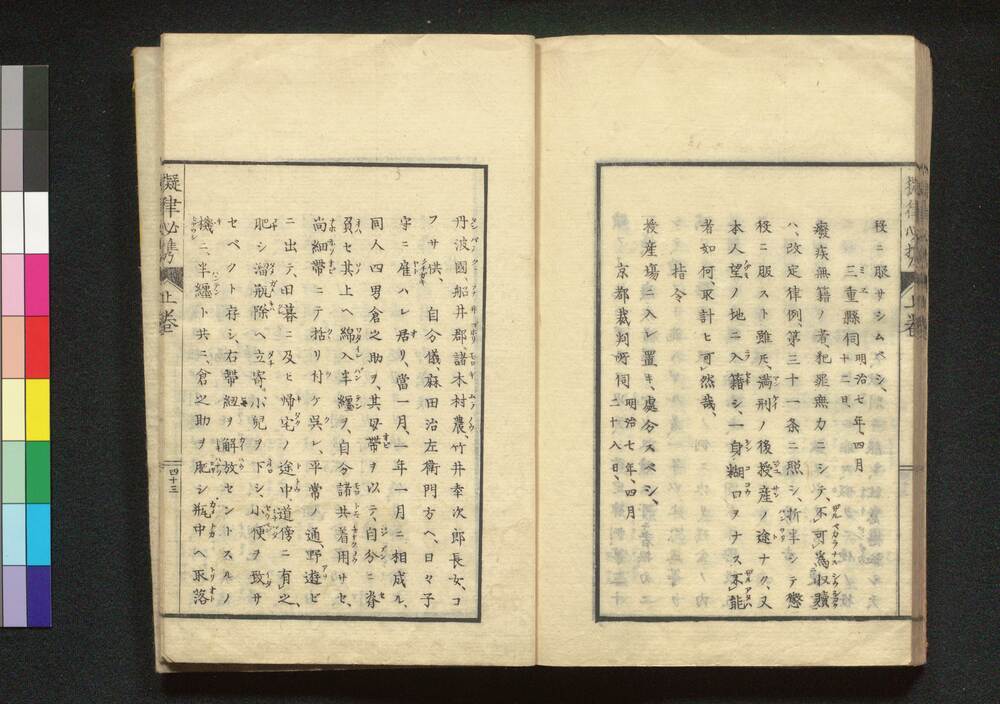 役ニ服サシムベシ、
三重縣伺 明治七年、四月十二日、
癈疾無籍ノ者、犯罪無力ニシテ、不可為収贖
ハ、改定律例、第三十一条ニ照シ、折半シテ懲
役ニ服スト雖𪜈、満刑ノ後授産ノ途ナク、又
本人望ノ地ニ入籍シ、一身糊口ヲナス不能
者如何、取計ヒ可然哉、
指令
授産場ニ入レ置キ、處分スベシ、
京都裁判所伺 明治七年、四月二十八日、
擬律必携 上巻
丹波國、船井郡諸木村農、竹井幸次郎長女、コ
フサ供、自分儀、森田治左衛門方ヘ、日々子
守ニ雇ハレ居リ、當一月、一年一月ニ相成ル、
同人四男倉之助ヲ、其母帶ヲ以テ、自分ニ脊
負セ其上ヘ綿入半纏ヲ、自分諸共着用サセ、
尚細帶ニテ括リ付ケ呉レ、平常ノ通、野遊ビ
ニ出テ、田暮ニ及ヒ帰宅ノ途中、道傍ニ有之、
肥シ溜瓶除ヘ立寄、小兒ヲ下シ、小便ヲ致サ
セベクト存シ、右帶紐ヲ解放セントスルノ
機ニ、半纏ト共ニ、倉之助ヲ肥シ瓶中ヘ取落
擬律必携 上巻 四十三